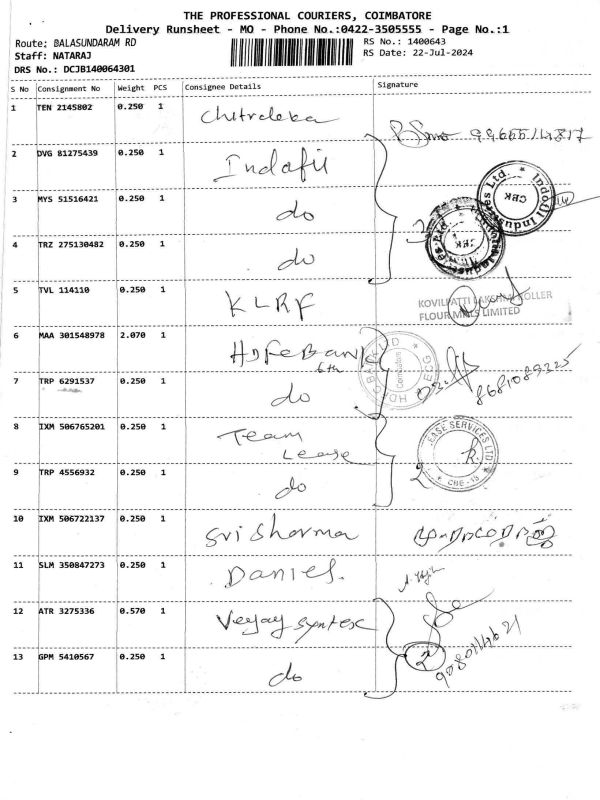 THE PROFESSIONAL COURIERS, COIMBATORE
Delivery Runsheet - MO - Phone No.:0422-3505555 - Page No.:1
Route: BALASUNDARAM RD
RS No.: 1400643
Staff: NATARAJ
RS Date: 22-Jul-2024
DRS No.: DCJB140064301
S No Consignment No Weight PCS Consignee Details Signature
1 TEN 2145802 0.250 1 Chitraleka
2 DVG 81275439 0.250 1 Indofil
3 MYS 51516421 0.250 1 do
4 TRZ 275130482 0.250 1 do
5 TVL 114110 0.250 1 KLRF
KOVILPATTI LAKSHMI ROLLER
FLOUR MILLS LIMITED
6 MAA 301548978 2.070 1 HDFC Bank
6th
HDFC BANK LTD
Coimbatore
7 TRP 6291537 0.250 1 do
8681089325
8 IXM 506765201 0.250 1 Team
Lease
LEASE SERVICES LTD
CBE-18
2
9 TRP 4556932 0.250 1 do
10 IXM 506722137 0.250 1 Sri Sharma
11 SLM 350847273 0.250 1 Daniel.
12 ATR 3275336 0.570 1 Veejay Syntex
2
13 GPM 5410567 0.250 1 do